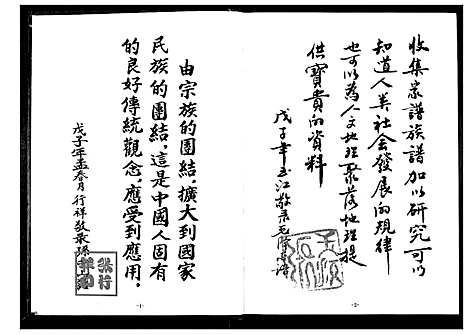 收集家譜族譜加以研究可以
知道人类社会發展的規律
也可以為人文地理聚落地理提
供寶貴的資料
戊子年玉江敬录毛
由宗族的團結，擴大到國家
民族的團結，這是中國人固有
的良好傳統觀念，應受到應用。
戊子年孟春月行祥敬录孫
-1-
-2-